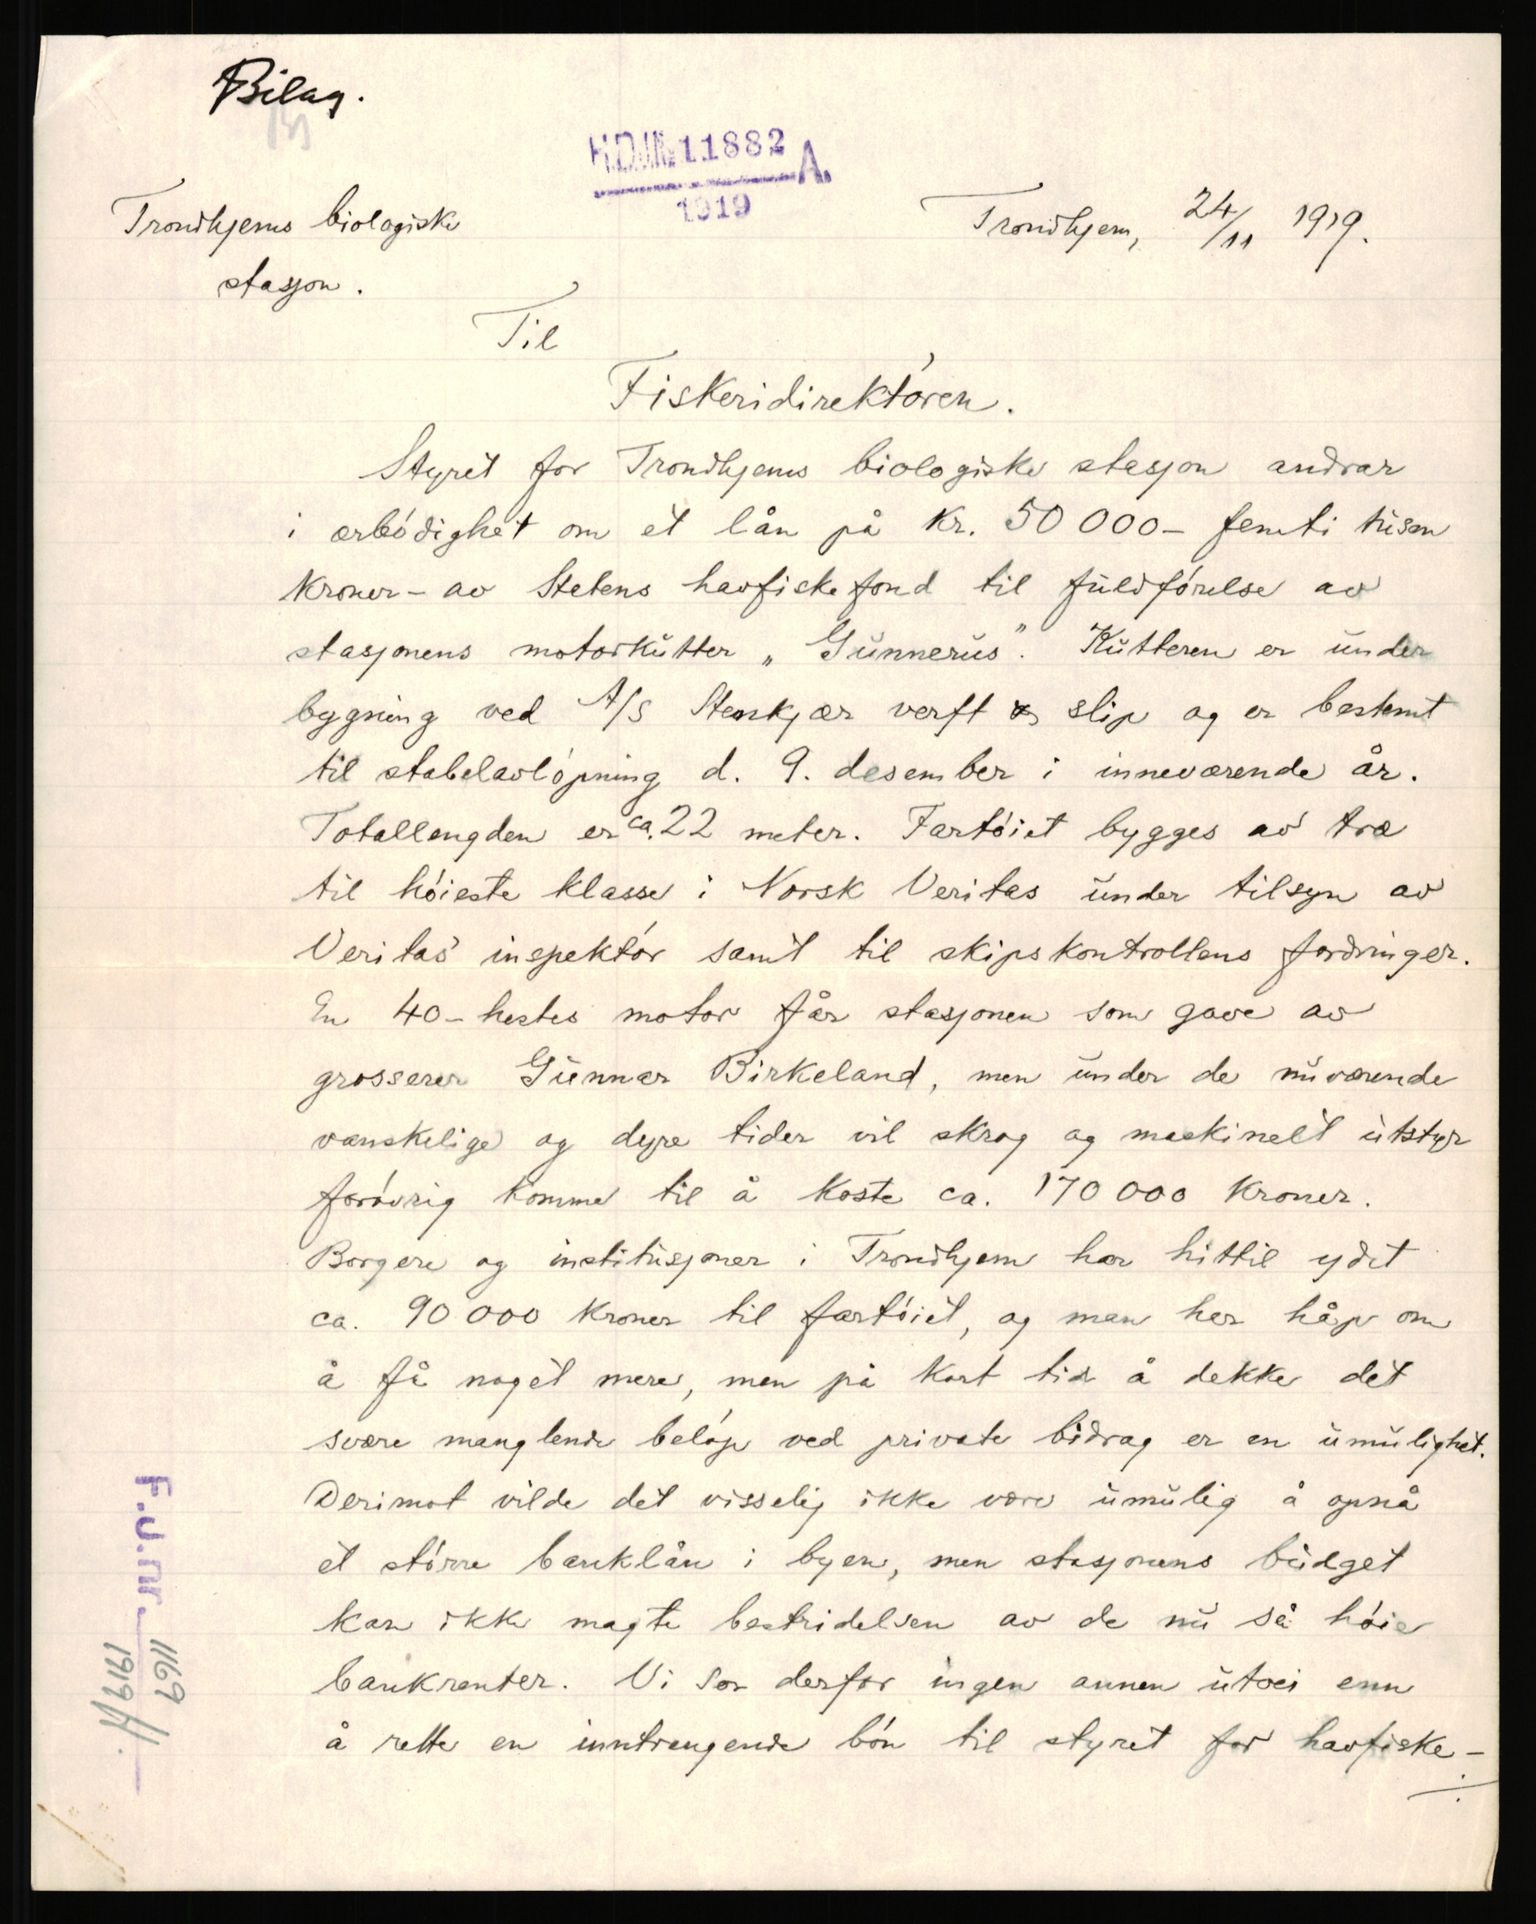 Bilag.
H.D.J.№ 11882 A.
1919
Trondhjems biologiske
stasjon.
Trondhjem, 24/11 1919.
Til
Fiskeridirektóren.
Styret for Trondhjems biologiske stasjon andrar
i ærbódighet om et lån på kr. 50 000 – femti tusen
kroner – av Statens havfiskefond til fuldfórelse av
stasjonens motorkutter „Gunnerus”. Kutteren er under
bygning ved A/S Stenkjær verft & slip og er bestemt
til stabelavlópning d. 9. desember i inneværende år.
Totallengden er ca. 22 meter. Fartóiet bygges av træ
til hóieste klasse i Norsk Veritas under tilsyn av
Veritas' inspektór samt til skipskontrollens fordringer.
En 40-hestes motor får stasjonen som gave av
grosserer Gunnar Birkeland, men under de nuværende
vanskelige og dyre tider vil skrog og maskinelt utstyr
foróvrig komme til å koste ca. 170 000 kroner.
Borgere og institusjoner i Trondhjem har hittil ydet
ca. 90 000 kroner til fartóiet, og man har håp om
å få noget mere, men på kort tid å dekke det
svære manglende belóp ved private bidrag er en umulighet.
Derimot vilde det visselig ikke være umulig å opnå
et stórre banklån i byen, men stasjonens budget
kan ikke magte bestridelsen av de nu så hóie
bankrenter. Vi ser derfor ingen annen utvei enn
å rette en inntrengende bón til styret for havfiske-
F.J.nr. 1169
1919 A.